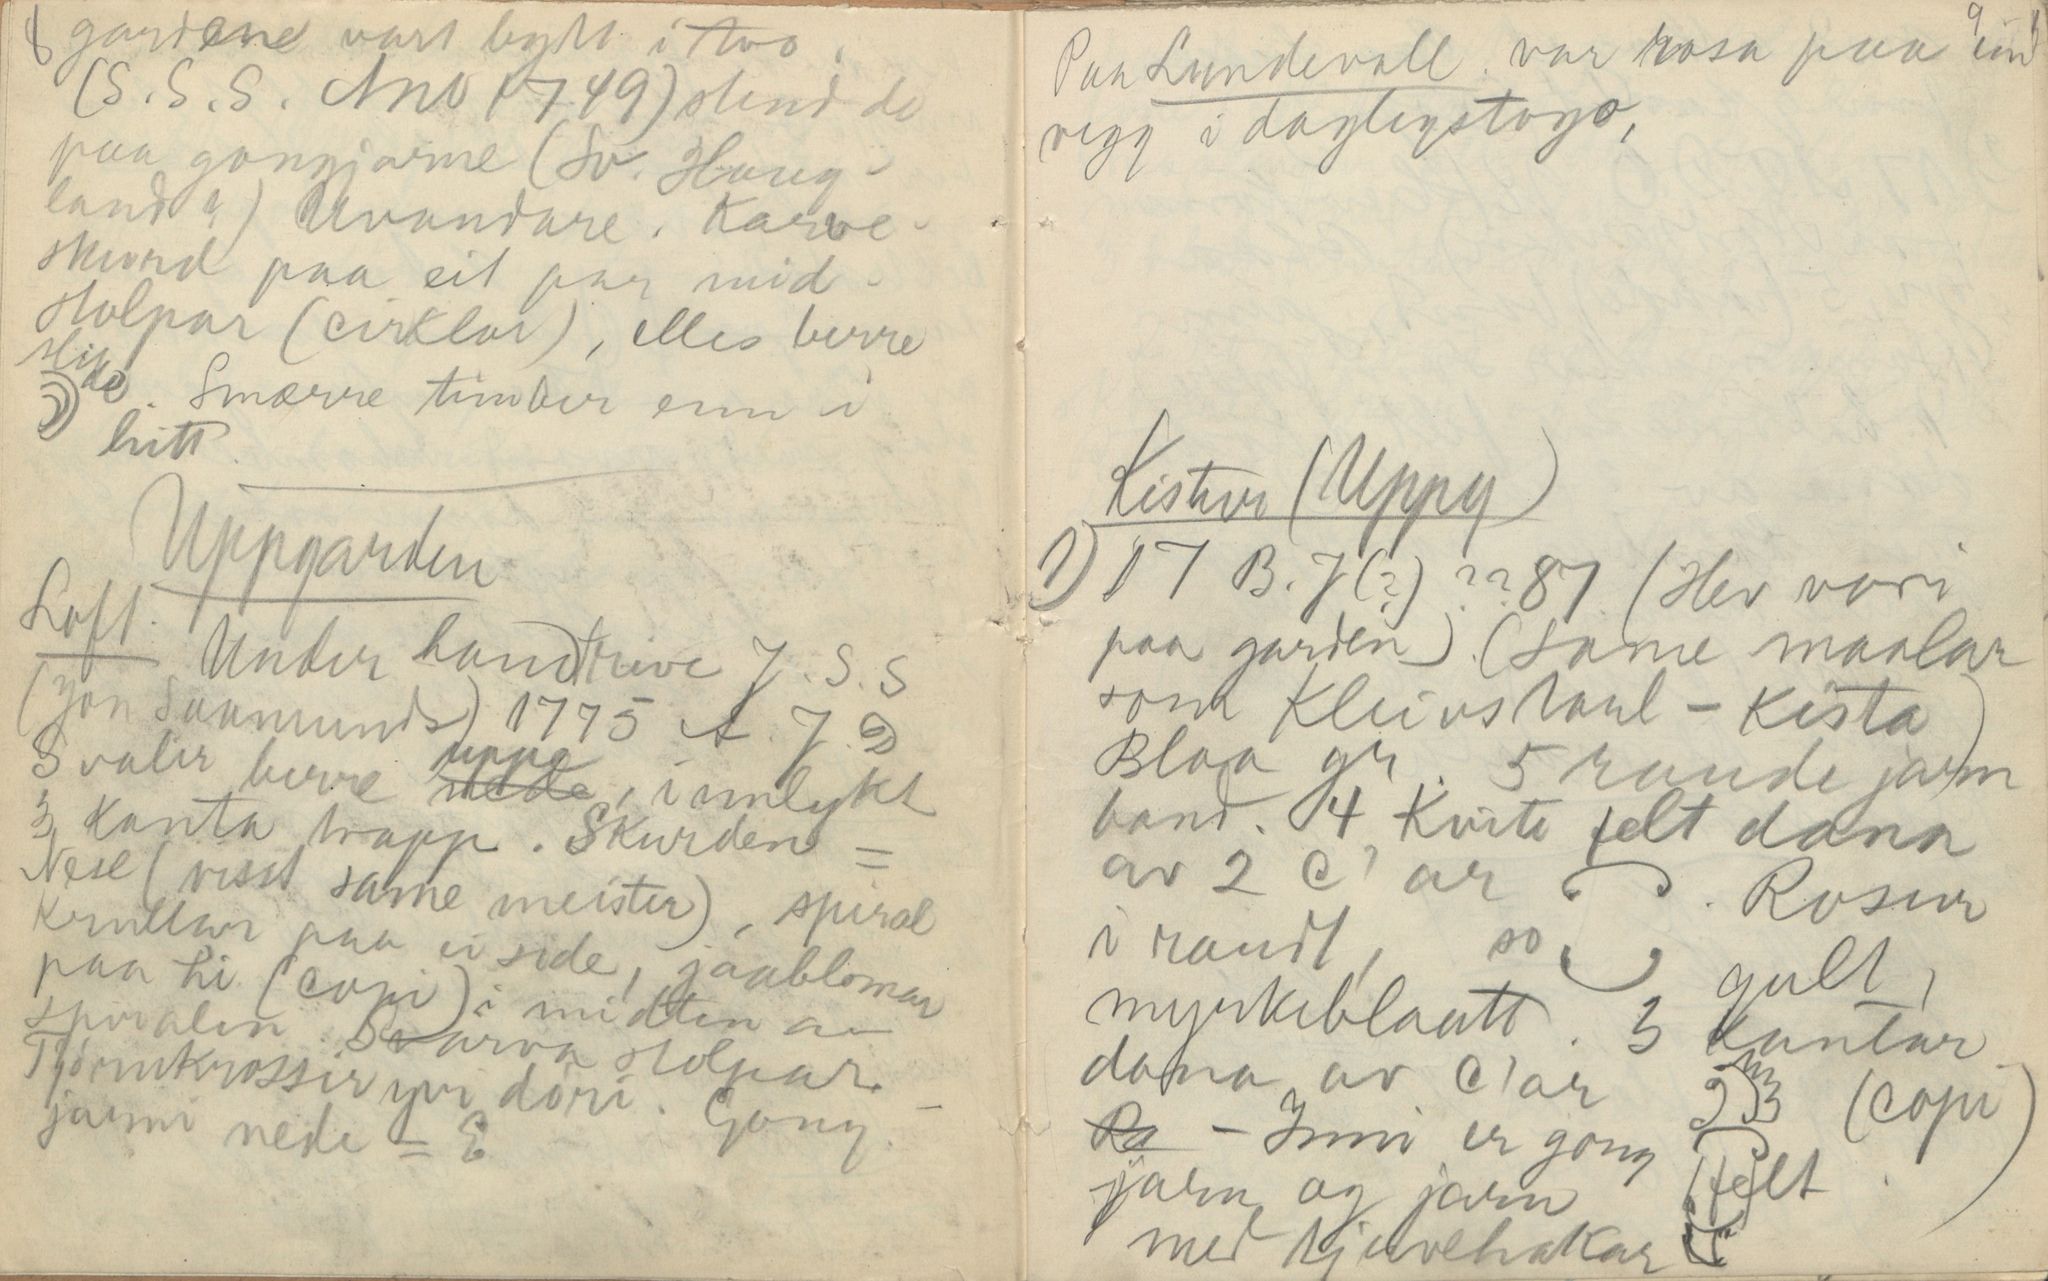 8
gardene vart bytt i tvo.
(S. S. S. Ano 1749) stend de
paa gongjarne (Sv. Haug-
land?) Uvandare. Karve-
skurd paa eit par mid-
stolpar (cirklar), elles berre
slike
. Smærre timber enn i
hitt.
Uppgarden
Loft. Under handtrive J. S. S
(Jon Saamunds) 1775 A. J. D
Svaler berre nede uppe, innlykt
3 kanta trapp. Skurden =
Nese (visst same meister), spiral
krullar paa ei side, jaablomar
paa hi (copi) i midten av
spiralen. Svarva stolpar.
Tjörnkrossir yvi döri. Gong-
jarni nede =
9
Paa Lundevall var rosa paa ein
vegg i daglegstogo,
Kistur (Uppg)
1) 17 B. J (?) ??87 (Hev vori
paa garden) (same maalar
som Kleivstaul-Kista)
Blaa gr. 5 raude jarn
band. 4 kvite felt dana
av 2 C'ar . Rosur
i raudt, so gult,
myrkeblaatt. 3 kantar
dana av C'ar (copi)
Ra - Inni er gong felt.
jarn og jarn
med kjuvehakar